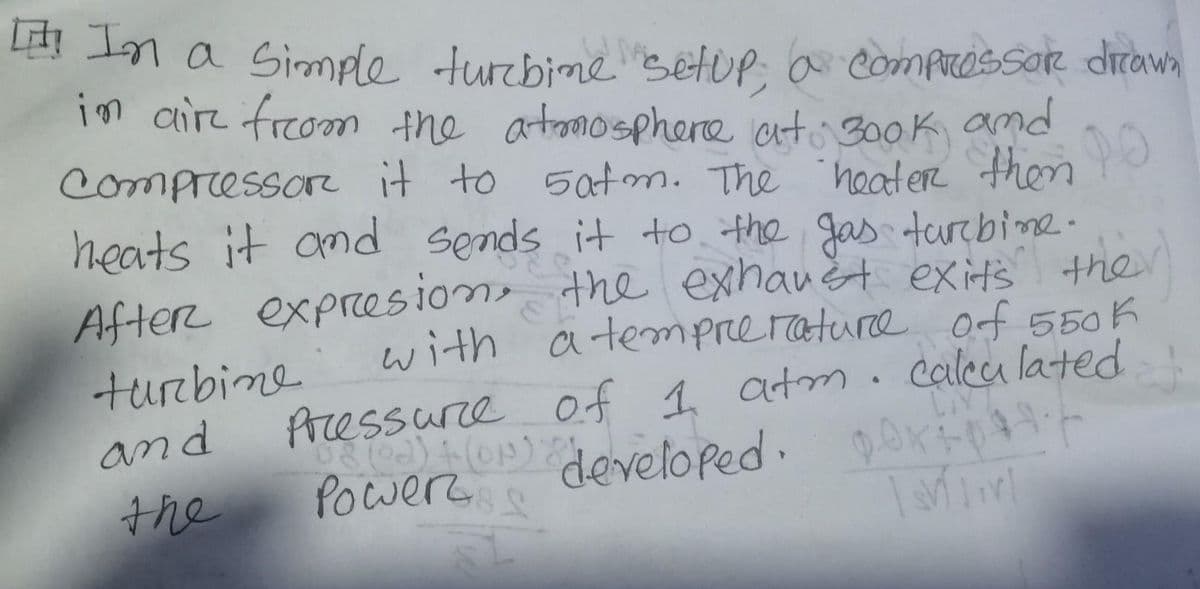 In a Simple turbine setup, a compressor drawn
in air from the atmosphere at 300K and
Compressor it to 5atm. The heater then
heats it and sends it to the gas turbine.
After expresion, the exhaust exits the
turbine with a tempreratature of 550K
and Pressure of 1 atm. calculated
the Power developed.